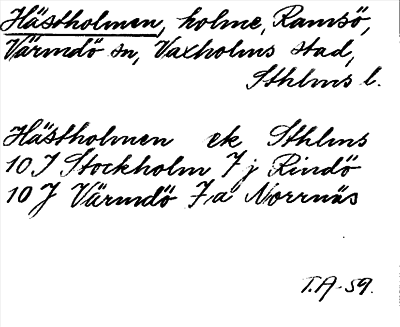 Hästholmen, holme, Ramsö,
Värmdö sn, Vaxholms stad,
Sthlms l.
Hästholmen ek Sthlms
10 I Stockholm 7 j Rindö
10 J Värmdö 7 a Norrnäs
T.A-59.